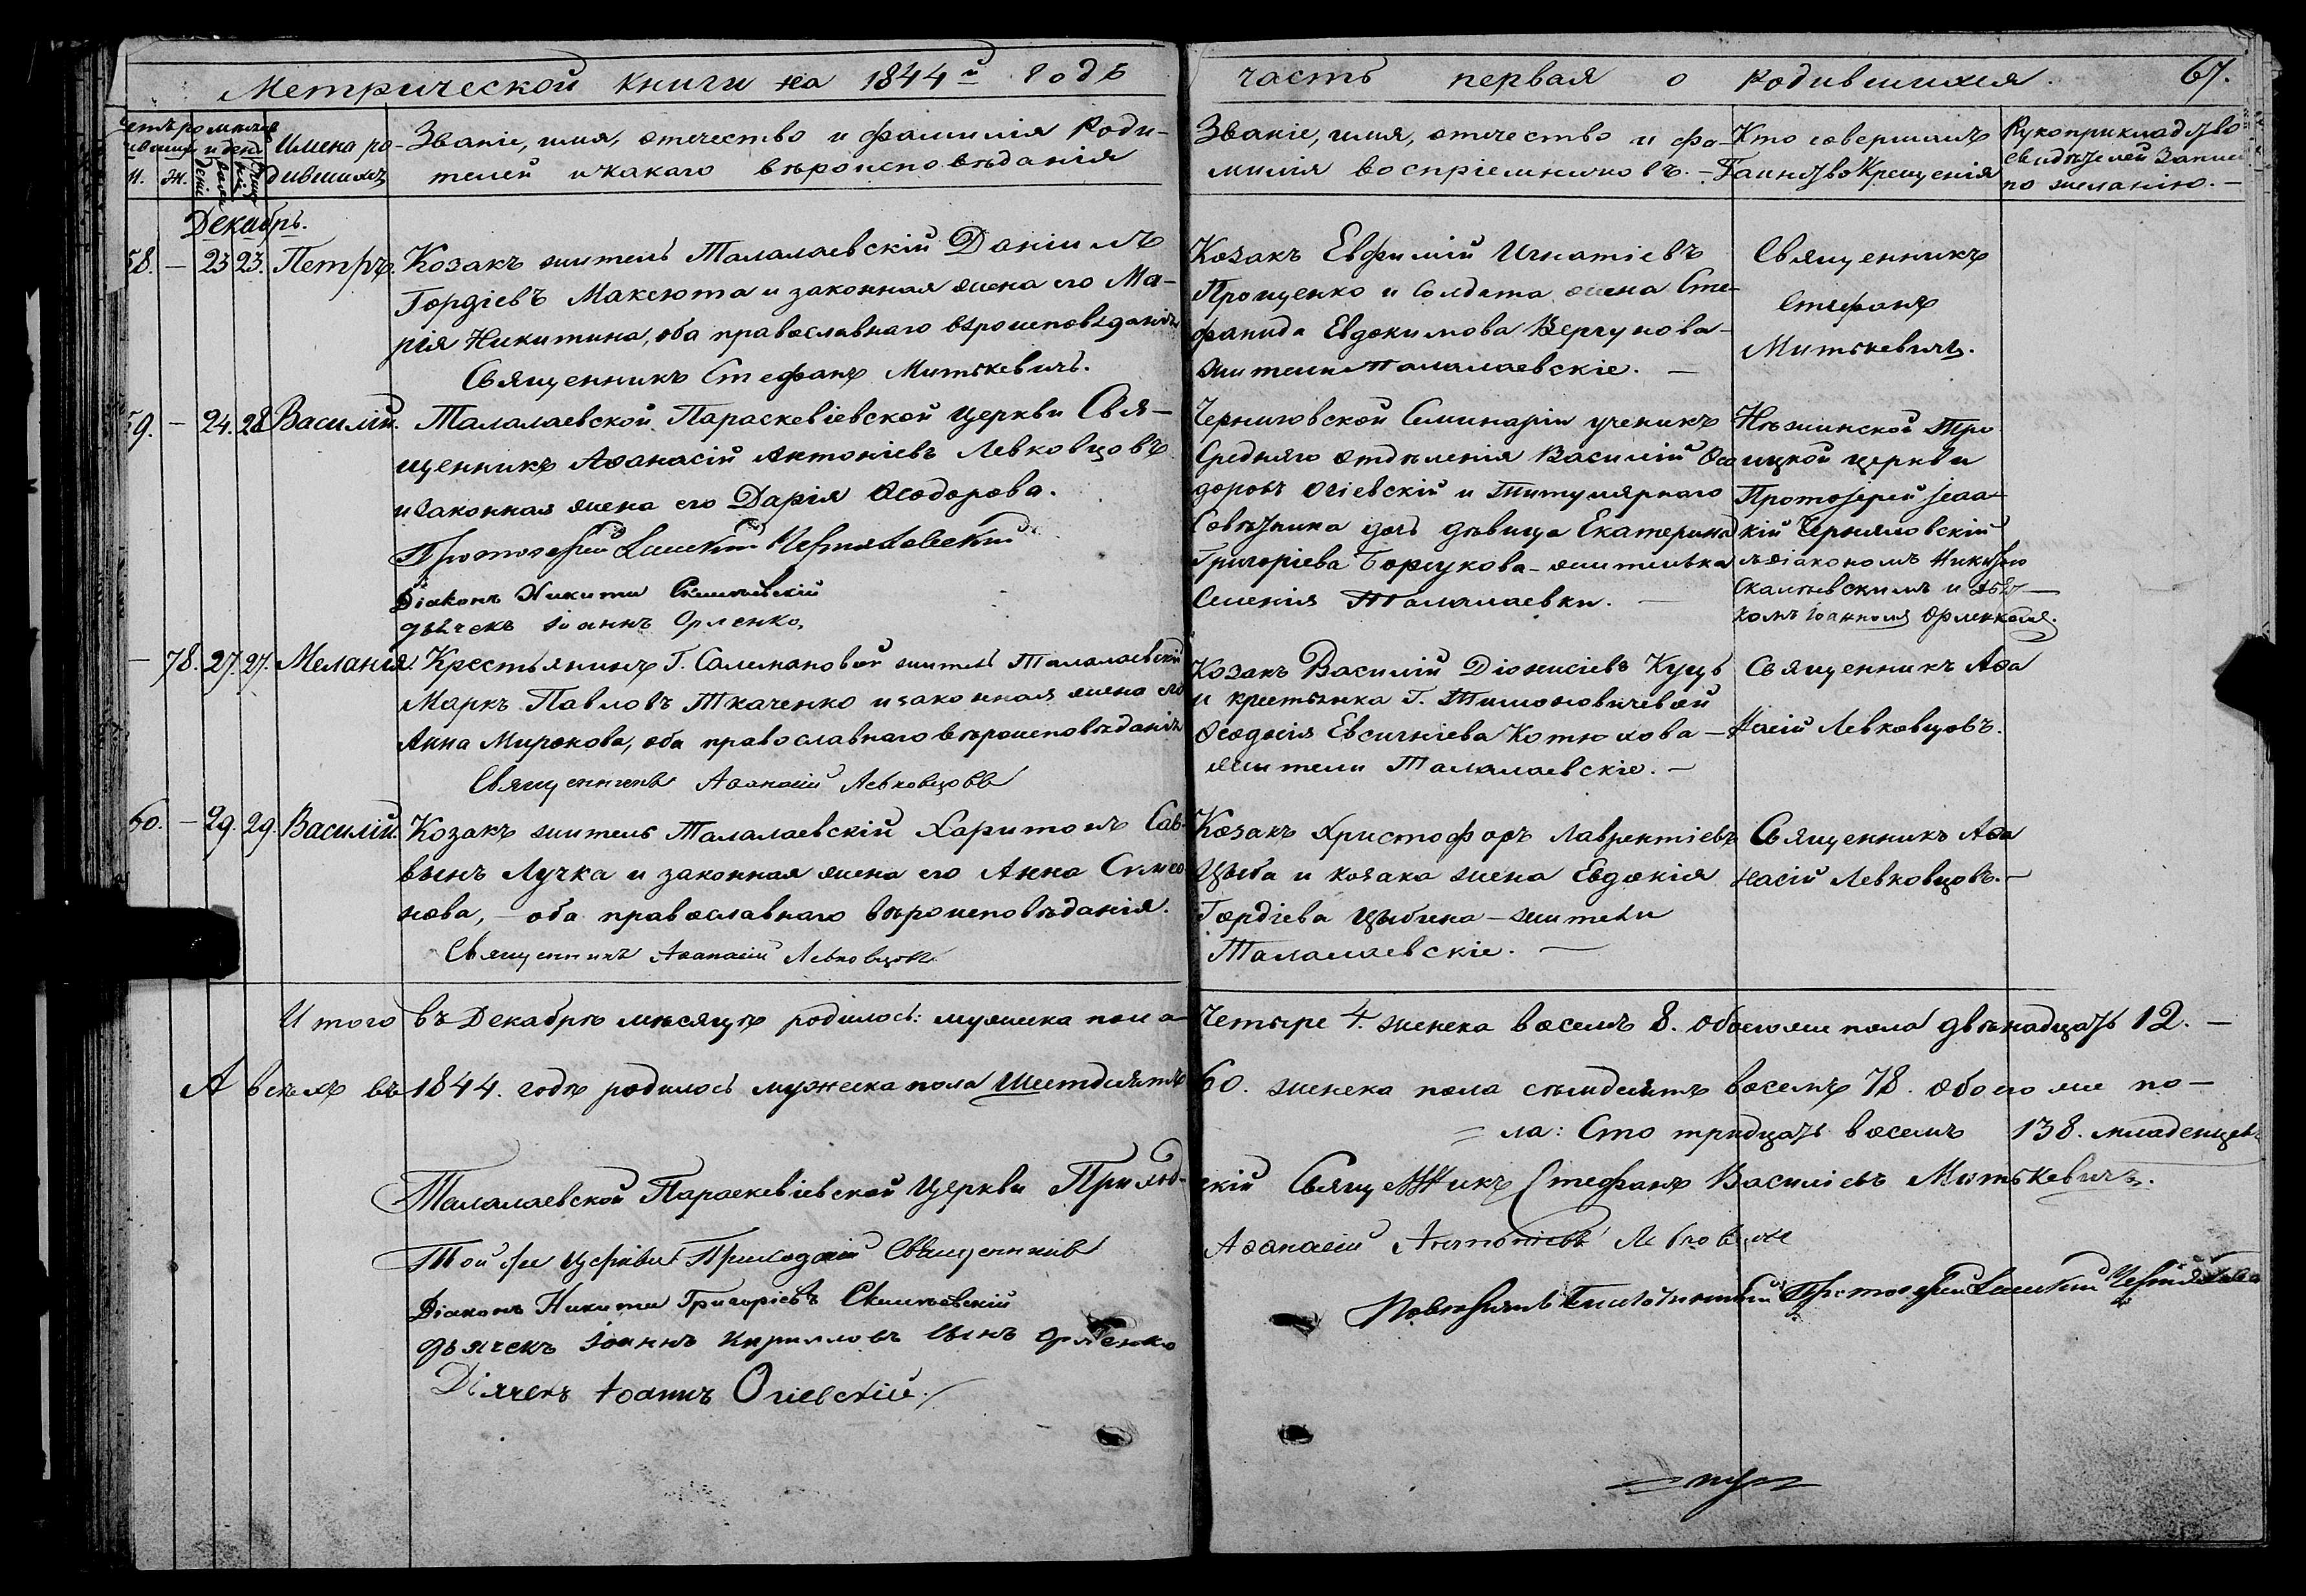 Метрической книги на 1844й годъ
часть первая о родившихся.
67.
Имена ро-
дившихъ
Званіе, имя, отечество и фамилія Роди-
телей и какаго вѣроисповѣданія
Званіе, имя, отечество и фа-
милія воспріемниковъ.-
Кто совершалъ
Таинство Крещенія
Рукоприкладство
свидѣтелей записи
по желанію.-
м. ж.
Декабрь.
58. - 23 23. Петръ.
Козакъ житель Талалаевскій Даніилъ
Гордіевъ Максюта и законная жена его Ма-
рія Никитина, оба православнаго вѣроисповѣданія
Священникъ Стефанъ Митькевичъ.
Козакъ Евфимій Игнатіевъ
Прощенко и Солдата жена Сте-
фанида Евдокимова Вергунова-
жители Талалаевскіе. -
Священникъ
Стефанъ
Митькевичъ.
59. - 24. 28. Василій.
Талалаевской Параскевіевской церкви Свя-
щенникъ Аѳанасій Антоніевъ Левковцовъ
и законная жена его Дарія Ѳеодорова.
Протоіерей
Діаконъ Никита
дьячекъ Іоаннъ Орленко,
Черниговской Семинаріи ученикъ
Средняго отдѣленія Василій Ѳео
доровъ Огіевскій и Титулярнаго
Совѣтника дочь дѣвица Екатерина
Григоріева Борсукова - жителька
Селенія Талалаевки. -
Нѣжинской Тро
ицкой церкви
Протоіерей Іоан-
кій
съ діакономъ Никитою
и дья-
комъ Іоанномъ Орленкомъ.
- 78. 27. 27. Меланія.
Крестьянинъ Г. Салимановой житель Талалаевскій
Маркъ Павловъ Ткаченко и законная жена его
Анна Миронова, оба православнаго вѣроисповѣданія
Священникъ Аѳанасій Левковцовъ
Козакъ Василій Діонисіевъ Куць
и крестьянка Г. Тимоновичевой
Ѳеодосія Евсигніева Котюхова -
жители Талалаевскіе. -
Священникъ Аѳа
насій Левковцовъ.
60. - 29. 29. Василій.
Козакъ житель Талалаевскій Харитонъ Сав-
вынъ Лучка и законная жена его Анна Симео
нова, - оба православнаго вѣроисповѣданія.
Священникъ Аѳанасій Левковцовъ
Козакъ Христофоръ Лаврентіевъ
Цыба и козака жена Евдокія
Гордіева Цыбина - жители
Талалаевскіе. -
Священникъ Аѳа
насій Левковцовъ.-
Итого въ Декабрѣ мѣсяцѣ родилось: мужеска пола
Четыре 4. женска восемь 8. обоего же пола двѣнадцать 12. -
А всѣхъ въ 1844. годѣ родилось мужеска пола Шестдесятъ
60. женска пола семдесятъ восемь 78. обоего же по-
= ла: Сто тридцать восемь 138. младенцевъ
Талалаевской Параскевіевской Церкви Приход-
скій Священникъ Стефанъ Василіевъ Митькевичъ.
Той же церкви Приходскій Священникъ
Аѳанасій Антоніевъ Левковцовъ
Діаконъ Никита Григоріевъ
дьячекъ Іоаннъ Кирилловъ сынъ Орленко
Дьячекъ Іоаннъ Огіевскій.
Протоіерей